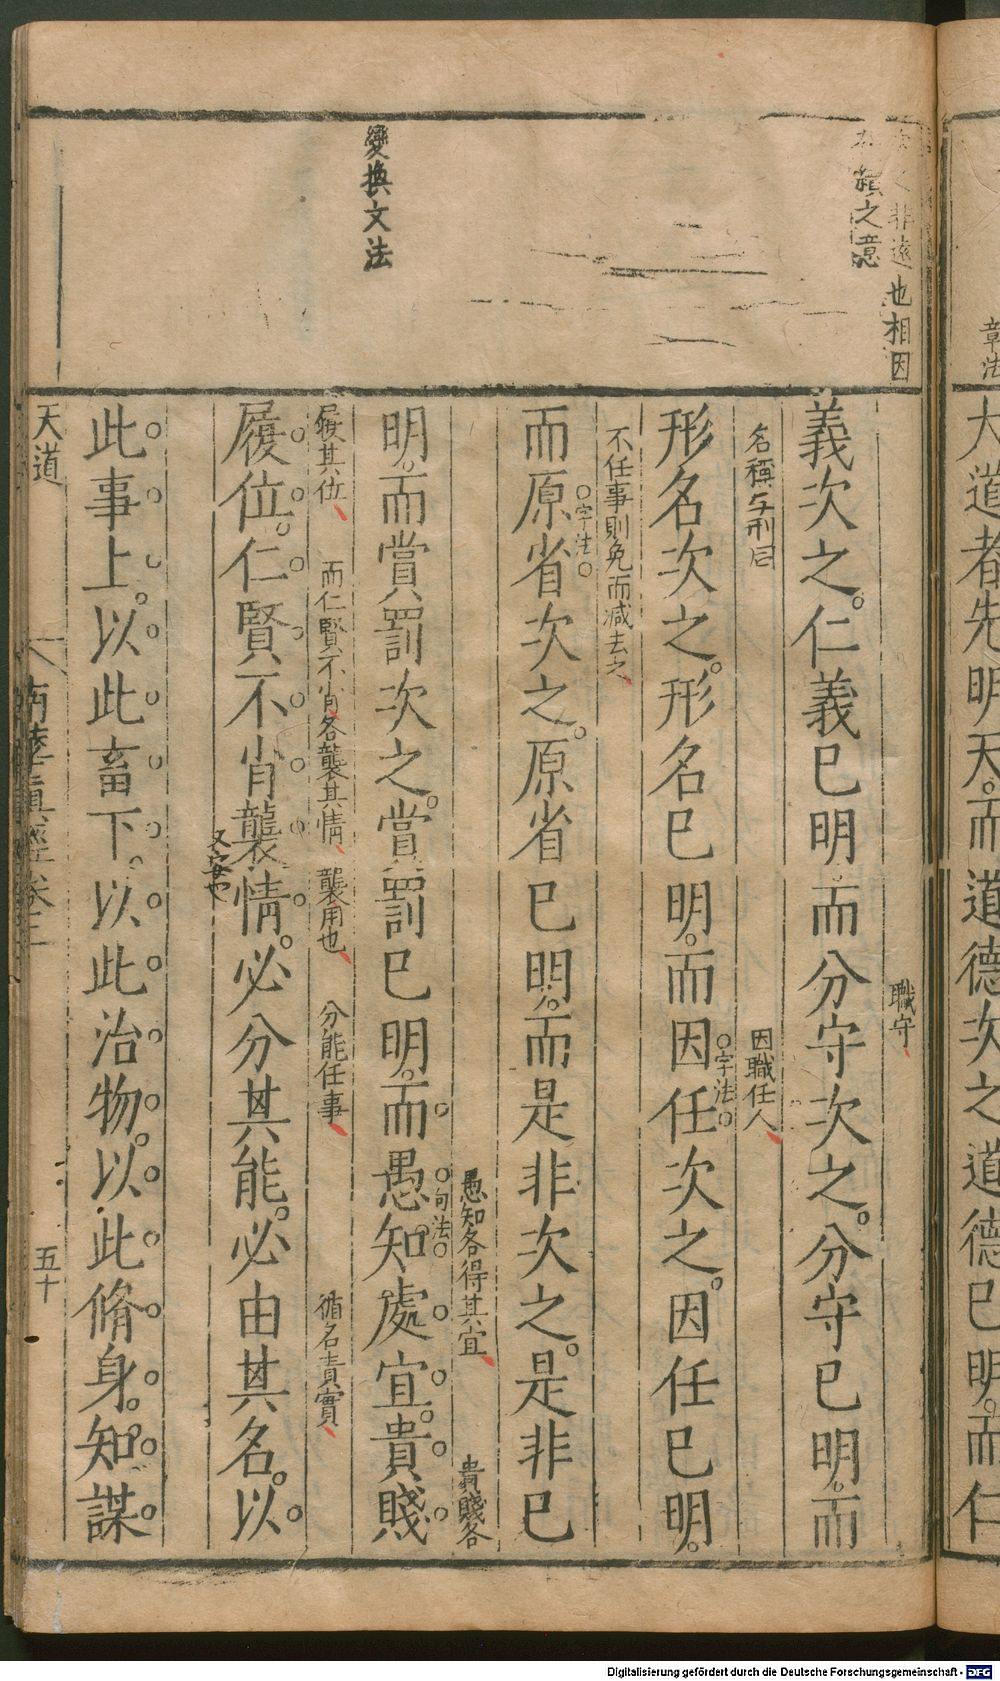 章法
大道者先明天。而道德次之道德已明。而仁
之非遠也相因
續之意
職守
義次之。仁義已明。而分守次之。分守已明。而
名稱与刑
因職任人
形名次之。形名已明。而因任次之。因任已明。
字法
不任事則免而減去之
而原省次之。原省已明。而是非次之。是非已
字法
愚知各得其宜
貴賤各
變換文法
明。而賞罰次之。賞罰已明。而愚知處宜。貴賤
句法
履其位
而仁賢不肖各襲其情
襲用也
分能任事
循名責實
履位。仁賢不肖襲情。必分其能。必由其名。以
又安也
此事上。以此畜下。以此治物。以此脩身。知謀
天道
南華真經卷三
五十
Digitalisierung gefördert durch die Deutsche Forschungsgemeinschaft - DFG